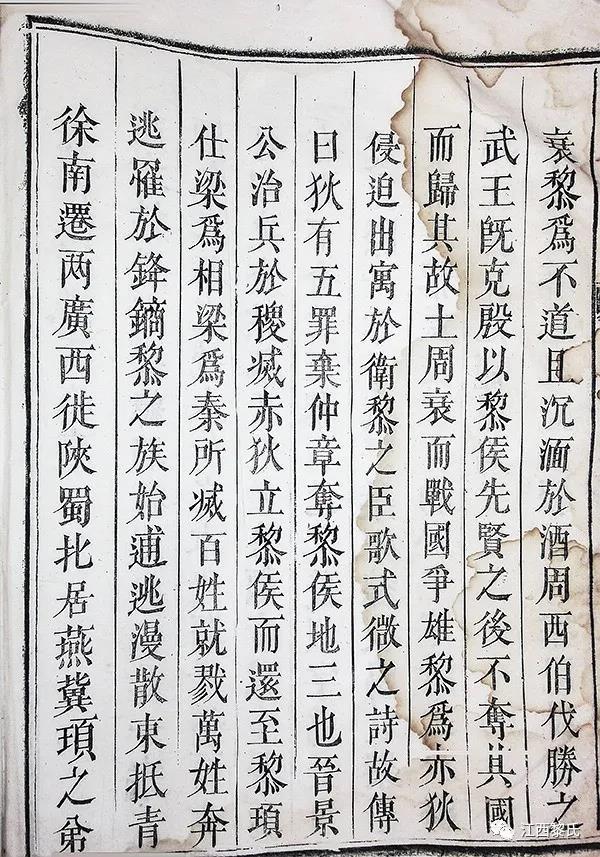 衰黎爲不道且沉湎於酒周西伯伐勝之
武王旣克殷以黎侯先賢之後不奪其國
而歸其故土周衰而戰國爭雄黎爲亦狄
侵迫出寓於衛黎之臣歌式微之詩故傳
曰狄有五罪棄仲章奪黎侯地三也晉景
公治兵於稷滅赤狄立黎侯而還至黎頊
仕梁爲相梁爲秦所滅百姓就戮萬姓奔
逃罹於鋒鏑黎之族始逋逃漫散東抵青
徐南遷两廣西徙陝蜀北居燕冀頊之弟
江西黎氏